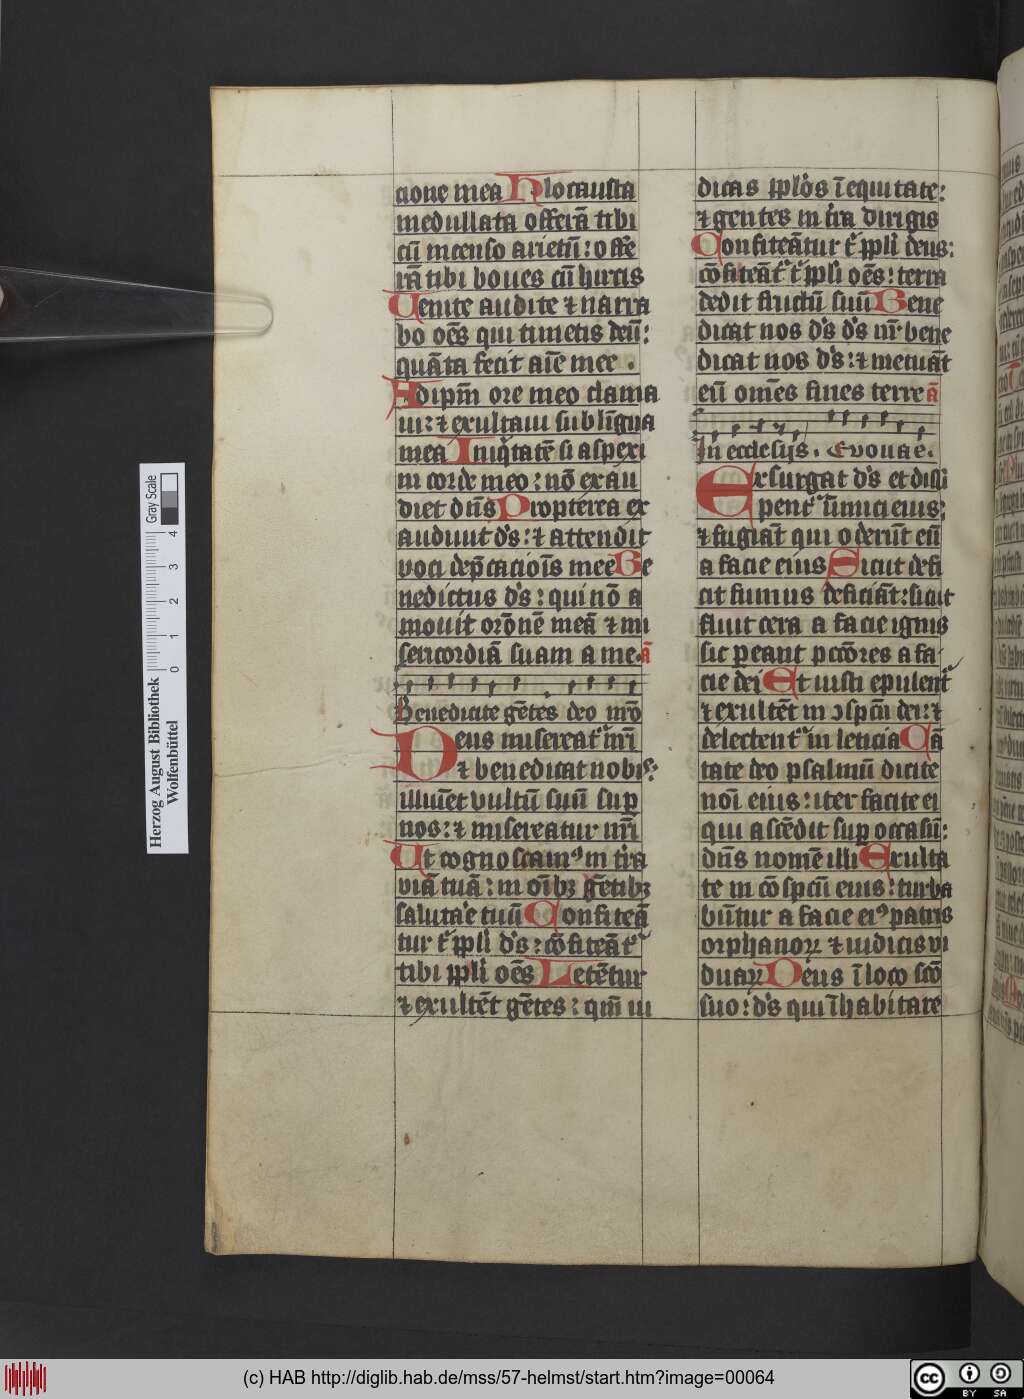 cione mea Holocausta
medullata offerā tibi
cū incenso arietū : offe
rā tibi boues cū hircis
Uenite audite ⁊ narra
bo oēs qui timetis deū :
quāta fecit aīe mee .
Ad ip̄m ore meo clama
ui : ⁊ exultaui sub līgua
mea Iniq̇tatē si aspexi
in corde meo : nō exau
diet dn̄s Propterea ex
audiuit ds̄ : ⁊ attendit
voci dep̄cacioīs mee Be
nedictus ds̄ : qui nō a
mouit orōnē meā ⁊ mi
sericordiā suam a me . ā
Benedicite gētes deo nr̄o
Deus misereat᷑ nr̄i
⁊ benedicat nobis :
illuīet vultū suū sup̱
nos : ⁊ misereatur nr̄i
Ut cognoscamꝰ in tr̄a
viā tuā : in oībꝫ gētibꝫ
salutar̄e tuū Confiteā
tur t᷑ pp̄li ds̄ : cōfiteāt᷑
tibi pp̄li oēs Letētur
⁊ exultēt gētes : qm̄ iu
dicas pp̄los ī equitate :
⁊ gentes in tr̄a dirigis
Confiteātur t᷑ pp̄li deus :
cōfiteāt᷑ t᷑ pp̄li oēs : terra
dedit fructū suū Bene
dicat nos ds̄ ds̄ nr̄ bene
dicat nos ds̄ : ⁊ metuāt
eū om̄es fines terre ā
In ecclesijs . Euouae .
Exsurgat ds̄ et dissi
pent᷑ inimici eius :
⁊ fugiāt qui oderūt eū
a facie eius Sicut defi
cit fumus deficiāt : sicut
fluit cera a facie ignis
sic ꝑeant pctōres a fa
cie dei Et iusti epulent᷑
⁊ exultēt in ↄspcū dei : ⁊
delectent᷑ in leticia Cā
tate deo psalmū dicite
noī eius : iter facite ei
qui ascēdit sup̱ occasū :
dn̄s nomē illi Exulta
te in cōspcū eius : turba
būtur a facie eiꝰ patris
orphanoꝝ ⁊ iudicis vi
duaꝝ Deus ī loco scō
suo : ds̄ qui īhabitare
Herzog August Bibliothek
Wolfenbüttel
Gray Scale
0 1 2 3 4
(c) HAB http://diglib.hab.de/mss/57-helmst/start.htm?image=00064
cc BY SA